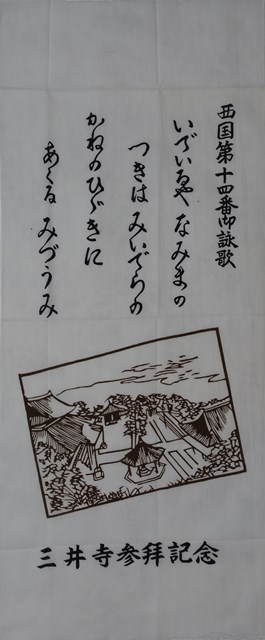 西国第十四番御詠歌
いでいるや なみまの
つきは みいでらの
かねのひゞきに
あくる みづうみ
三井寺参拝記念